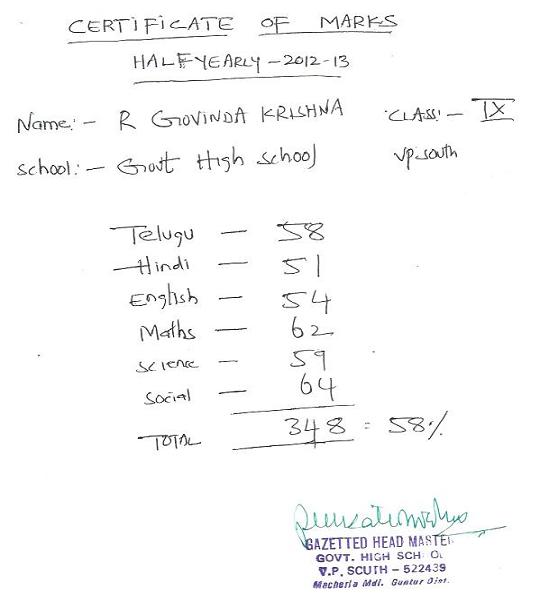 CERTIFICATE OF MARKS
HALFYEARLY - 2012-13
Name:- R GOVINDA KRISHNA CLASS:- IX
School:- Govt High School VP-South
Telugu — 58
Hindi — 51
English — 54
Maths — 62
Science — 59
Social — 64
TOTAL 348 = 58%
GAZETTED HEAD MASTER
GOVT. HIGH SCHOOL
V.P. SOUTH - 522439
Macherla Mdl. Guntur Dist.